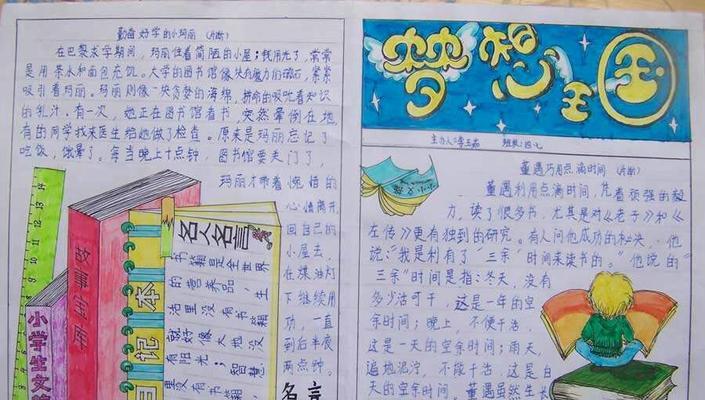 勤奋好学的小玛丽（片断）
在巴黎求学期间，玛丽住着简陋的小屋；钱用光了，常常
是用茶水和面包充饥。大学的图书馆像块有魔力的磁石，紧紧
吸引着玛丽。玛丽则像一块贪婪的海绵，拼命的吸吮着知识
的乳汁。有一次，她正在图书馆看书，突然晕倒在地，
有的同学找来医生给她做了检查。原来是玛丽忘记了
吃饭，饿晕了。每当晚上十点钟，图书馆要关门了，
玛丽才带着惋惜的
心情离开，
回自己的
小屋去，
在煤油灯
下继续用
功，一直
到后半夜
两点钟。
名言
故事
小学生文
日记本
名人名言
书籍是全世界
的营养品，生
活里没有书籍
就好像大地没
有阳光；智慧
里没有书籍，
梦想王国
主办人：李玉 班级：四.七
董遇巧用点滴时间（片断）
董遇利用点滴时间，凭着顽强的毅
力，读了很多书，尤其是对《老子》和《
左传》更有独到的研究。有人问他成功的秘决，他
说：“我是利有了“三余”时间来读书的。”他说的“
三余”时间是指：冬天，没有
多少活可干，这是一年的空
余时间；晚上，不便干活，
这是一天的空余时间；雨天，
遍地泥泞，不能干活，这是白
天的空余时间。董遇虽然生长